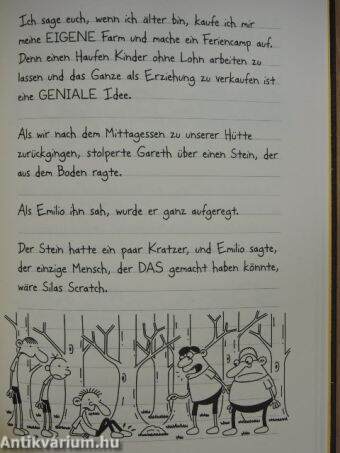 Ich sage euch, wenn ich älter bin, kaufe ich mir
meine EIGENE Farm und mache ein Feriencamp auf.
Denn einen Haufen Kinder ohne Lohn arbeiten zu
lassen und das Ganze als Erziehung zu verkaufen ist
eine GENIALE Idee.
Als wir nach dem Mittagessen zu unserer Hütte
zurückgingen, stolperte Gareth über einen Stein, der
aus dem Boden ragte.
Als Emilio ihn sah, wurde er ganz aufgeregt.
Der Stein hatte ein paar Kratzer, und Emilio sagte,
der einzige Mensch, der DAS gemacht haben könnte,
wäre Silas Scratch.
Antikvárium.hu